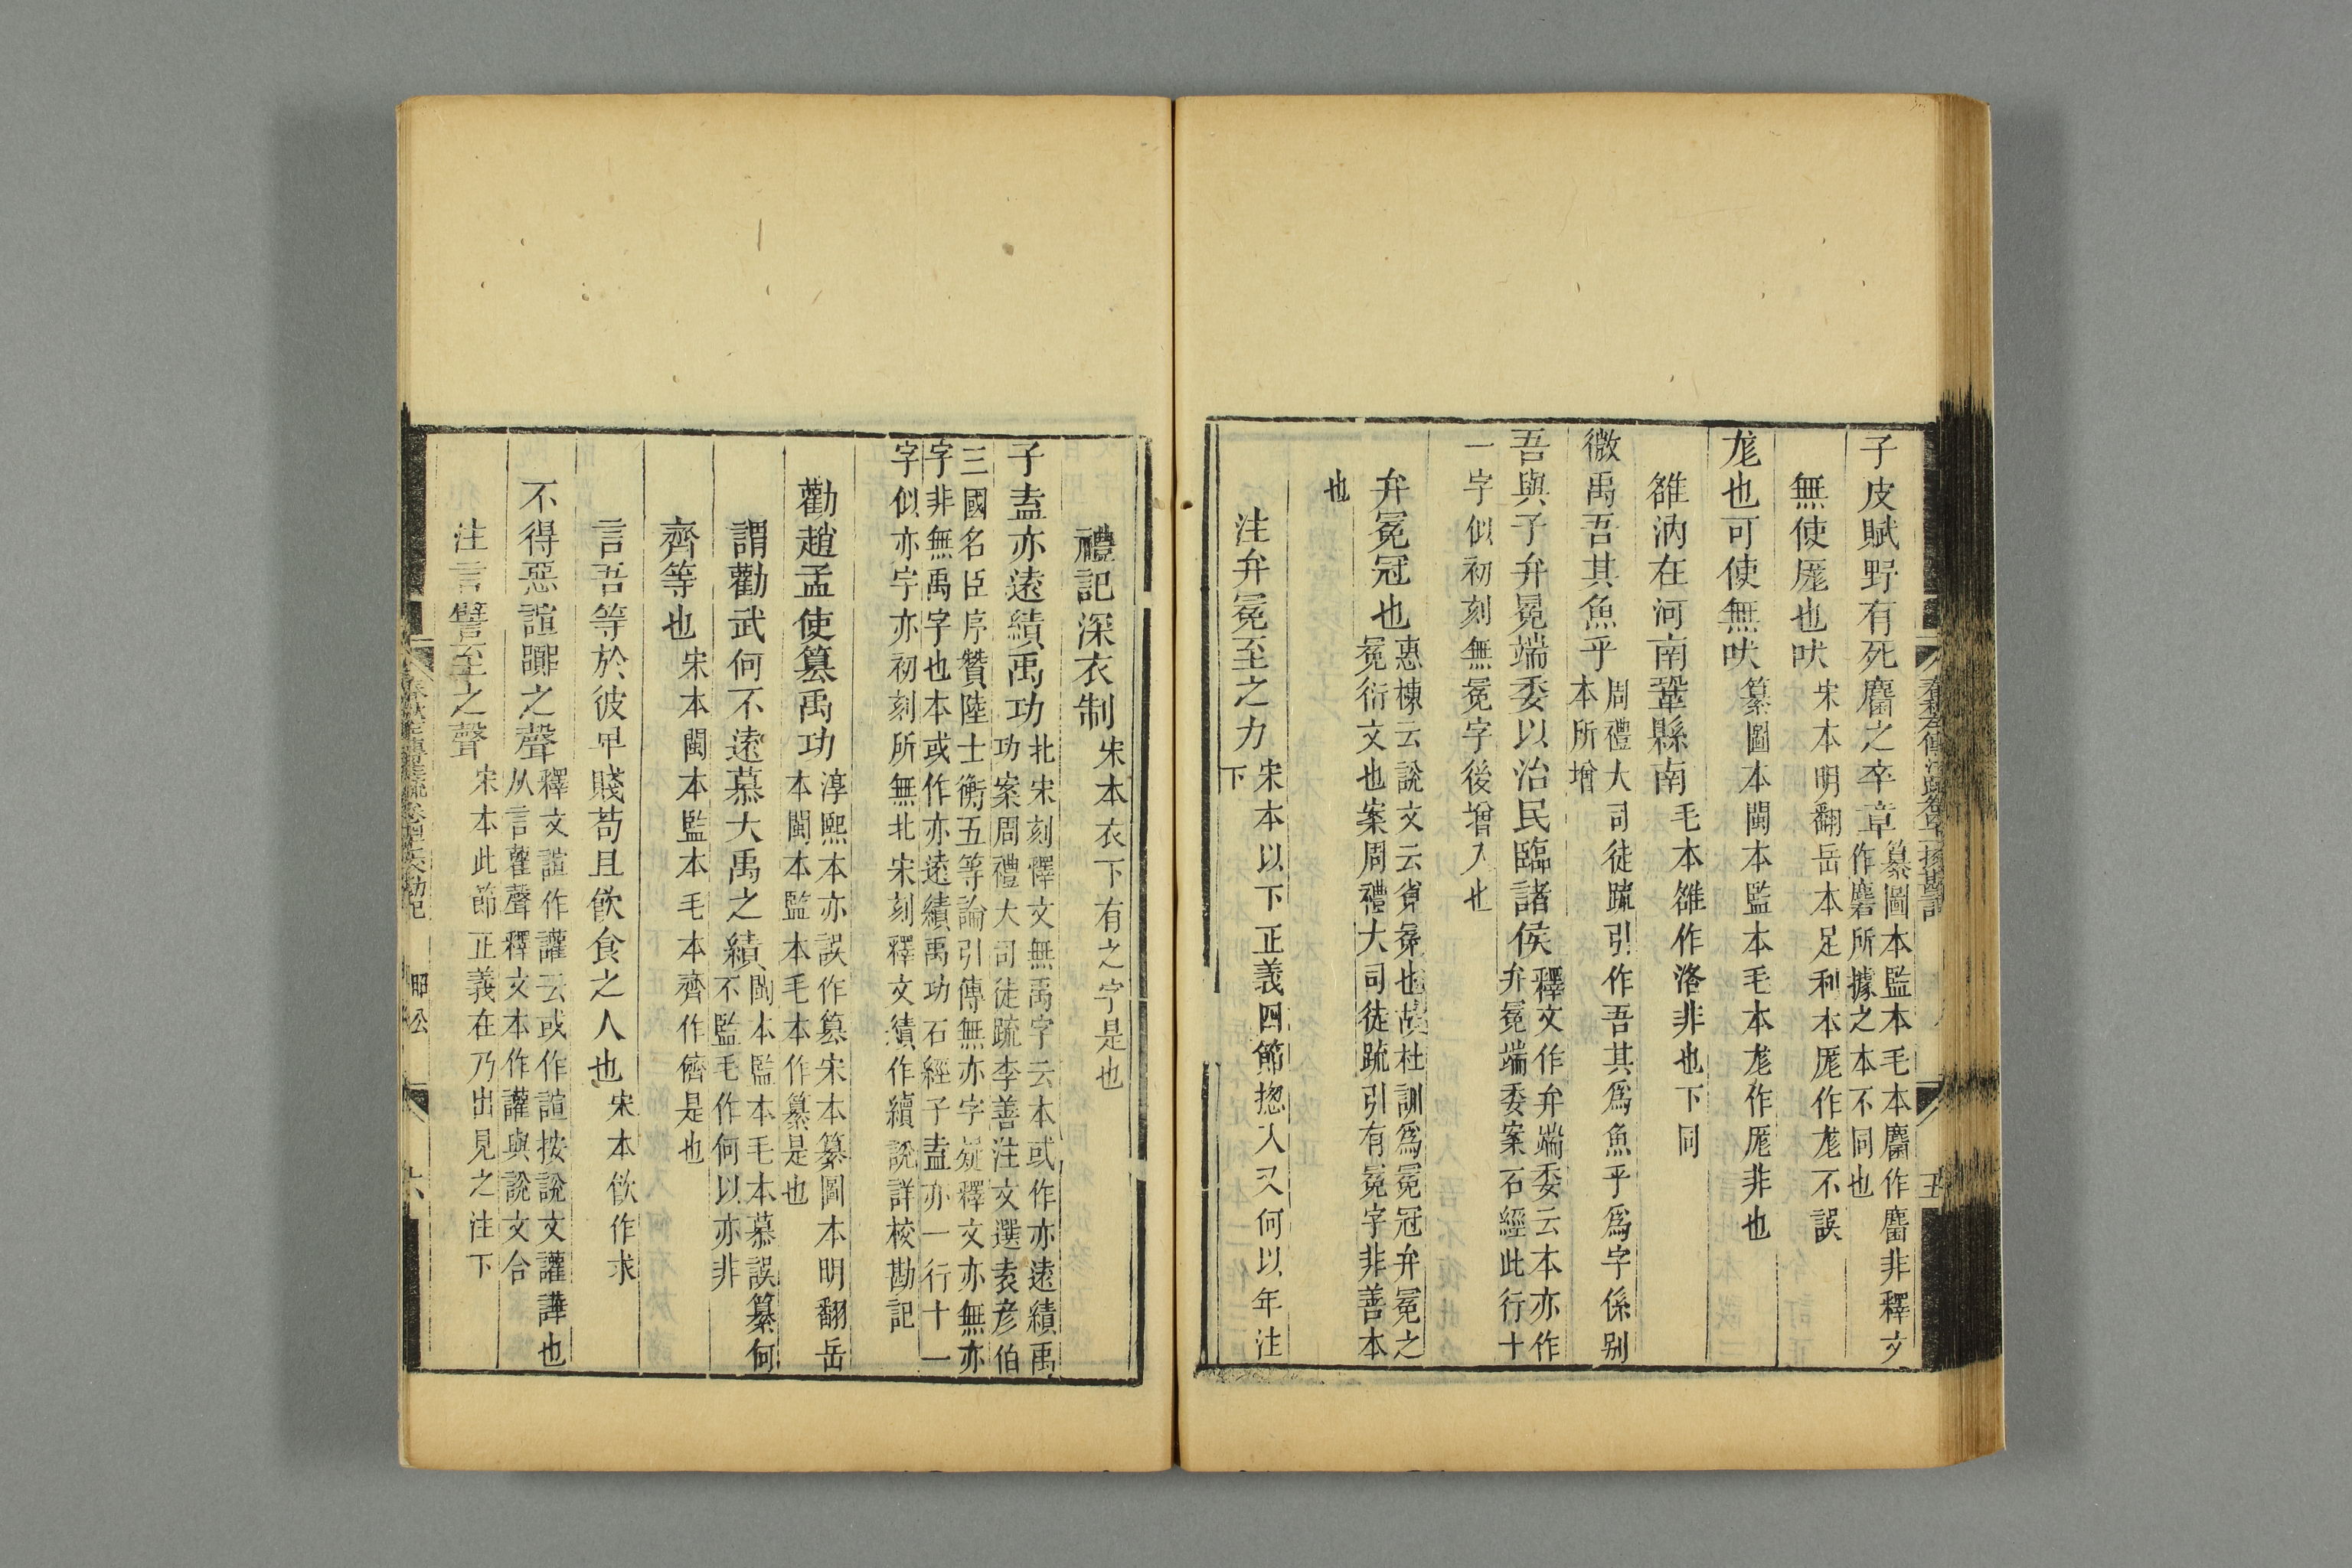 子皮賦野有死麕之卒章纂圖本監本毛本麕作麏非釋文
作麏所據之本不同也
無使尨也吠宋本明翻岳本足利本厖作尨不誤
尨也可使無吠纂圖本閩本監本毛本尨作厖非也
雒汭在河南鞏縣南毛本雒作洛非也下同
微禹吾其魚乎周禮大司徒疏引作吾其爲魚乎爲字係别
本所增
吾與子弁冕端委以治民臨諸侯釋文作弁端委云本亦作
弁冕端委案石經此行十
一字似初刻無冕字後增入也
弁冕冠也惠棟云說文云覍冕也故杜訓爲冕冠弁冕之
冕衍文也案周禮大司徒疏引有冕字非善本
也
注弁冕至之力宋本以下正義四節揔入又何以年注
下
禮記深衣制宋本衣下有之字是也
子盍亦遠績禹功北宋刻釋文無禹字云本或作亦遠績禹
功案周禮大司徒疏李善注文選袁彦伯
三國名臣序贊陸士衡五等論引傳無亦字疑釋文亦無亦
字非無禹字也本或作亦遠績禹功石經子盍亦一行十一
字似亦字亦初刻所無北宋刻釋文績作續說詳校勘記
勸趙孟使纂禹功淳熙本亦誤作篡宋本纂圖本明翻岳
本閩本監本毛本作纂是也
謂勸武何不遠慕大禹之績閩本監本毛本慕誤纂何
不監毛作何以亦非
齊等也宋本閩本監本毛本齊作儕是也
言吾等於彼甲賤苟且飮食之人也宋本飮作求
不得惡諠譁之聲釋文諠作讙云或作諠按說文讙譁也
从言雚聲釋文本作讙與說文合
注言譬至之聲宋本此節正義在乃出見之注下
昭公
六